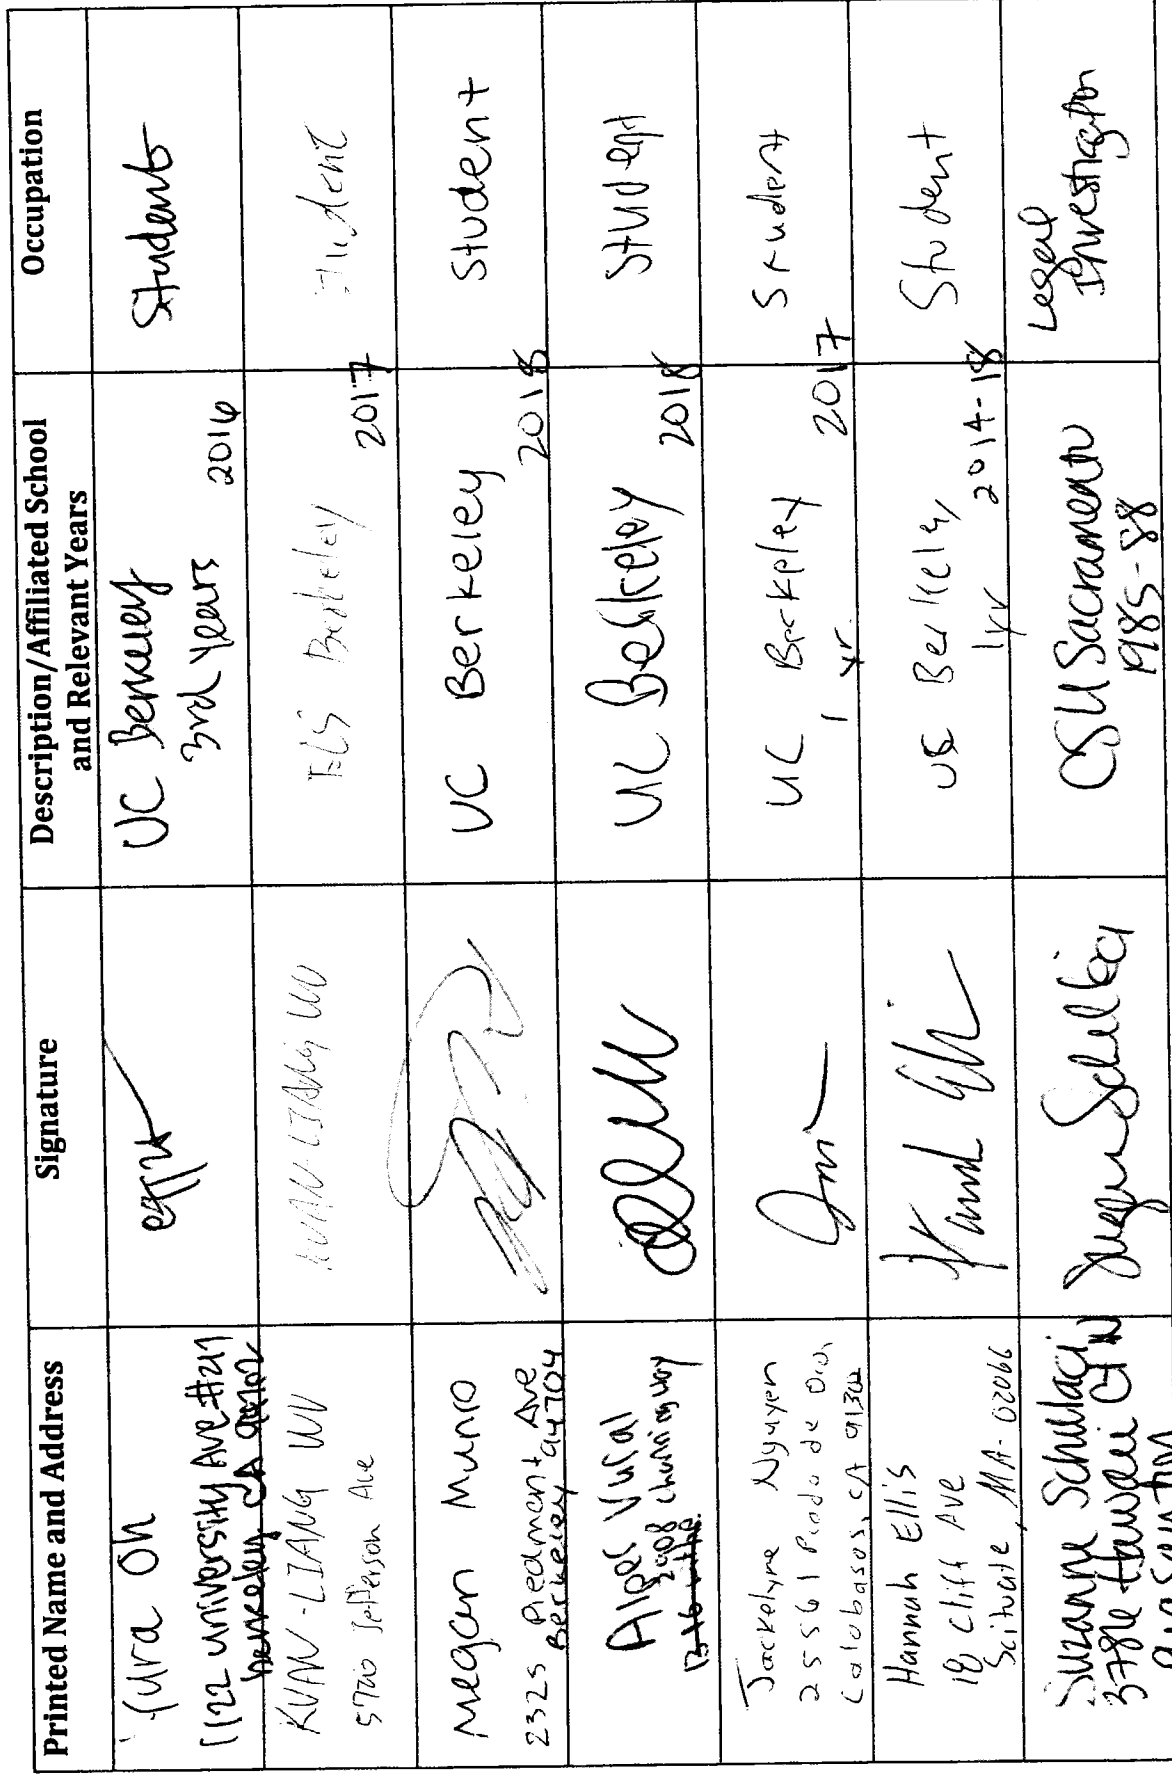 Printed Name and Address
Signature
Description/Affiliated School
and Relevant Years
Occupation
Yura Oh
1122 University Ave #217
berkeley CA
UC Berkeley
3rd years 2016
Student
KUAN-LIANG WU
Jefferson Ave
KUAN-LIANG WU
Berkeley
2017
Student
Megan Munro
2325 Piedmont Ave
Berkeley 94704
UC Berkeley
2018
Student
Alper Vural
2908 Channing way
UC Berkeley
2018
Student
Jackelyne Nguyen
25561 Prado de
Calabasas, CA 91302
UC Berkeley
1 yr. 2017
Student
Hannah Ellis
18 Cliff Ave
Scituate, MA-02066
Hannah Ellis
UC Berkeley
1yr 2014-18
Student
Suzanne Schulaci
Hawaii
CSU Sacramento
1985-88
Legal
Investigator